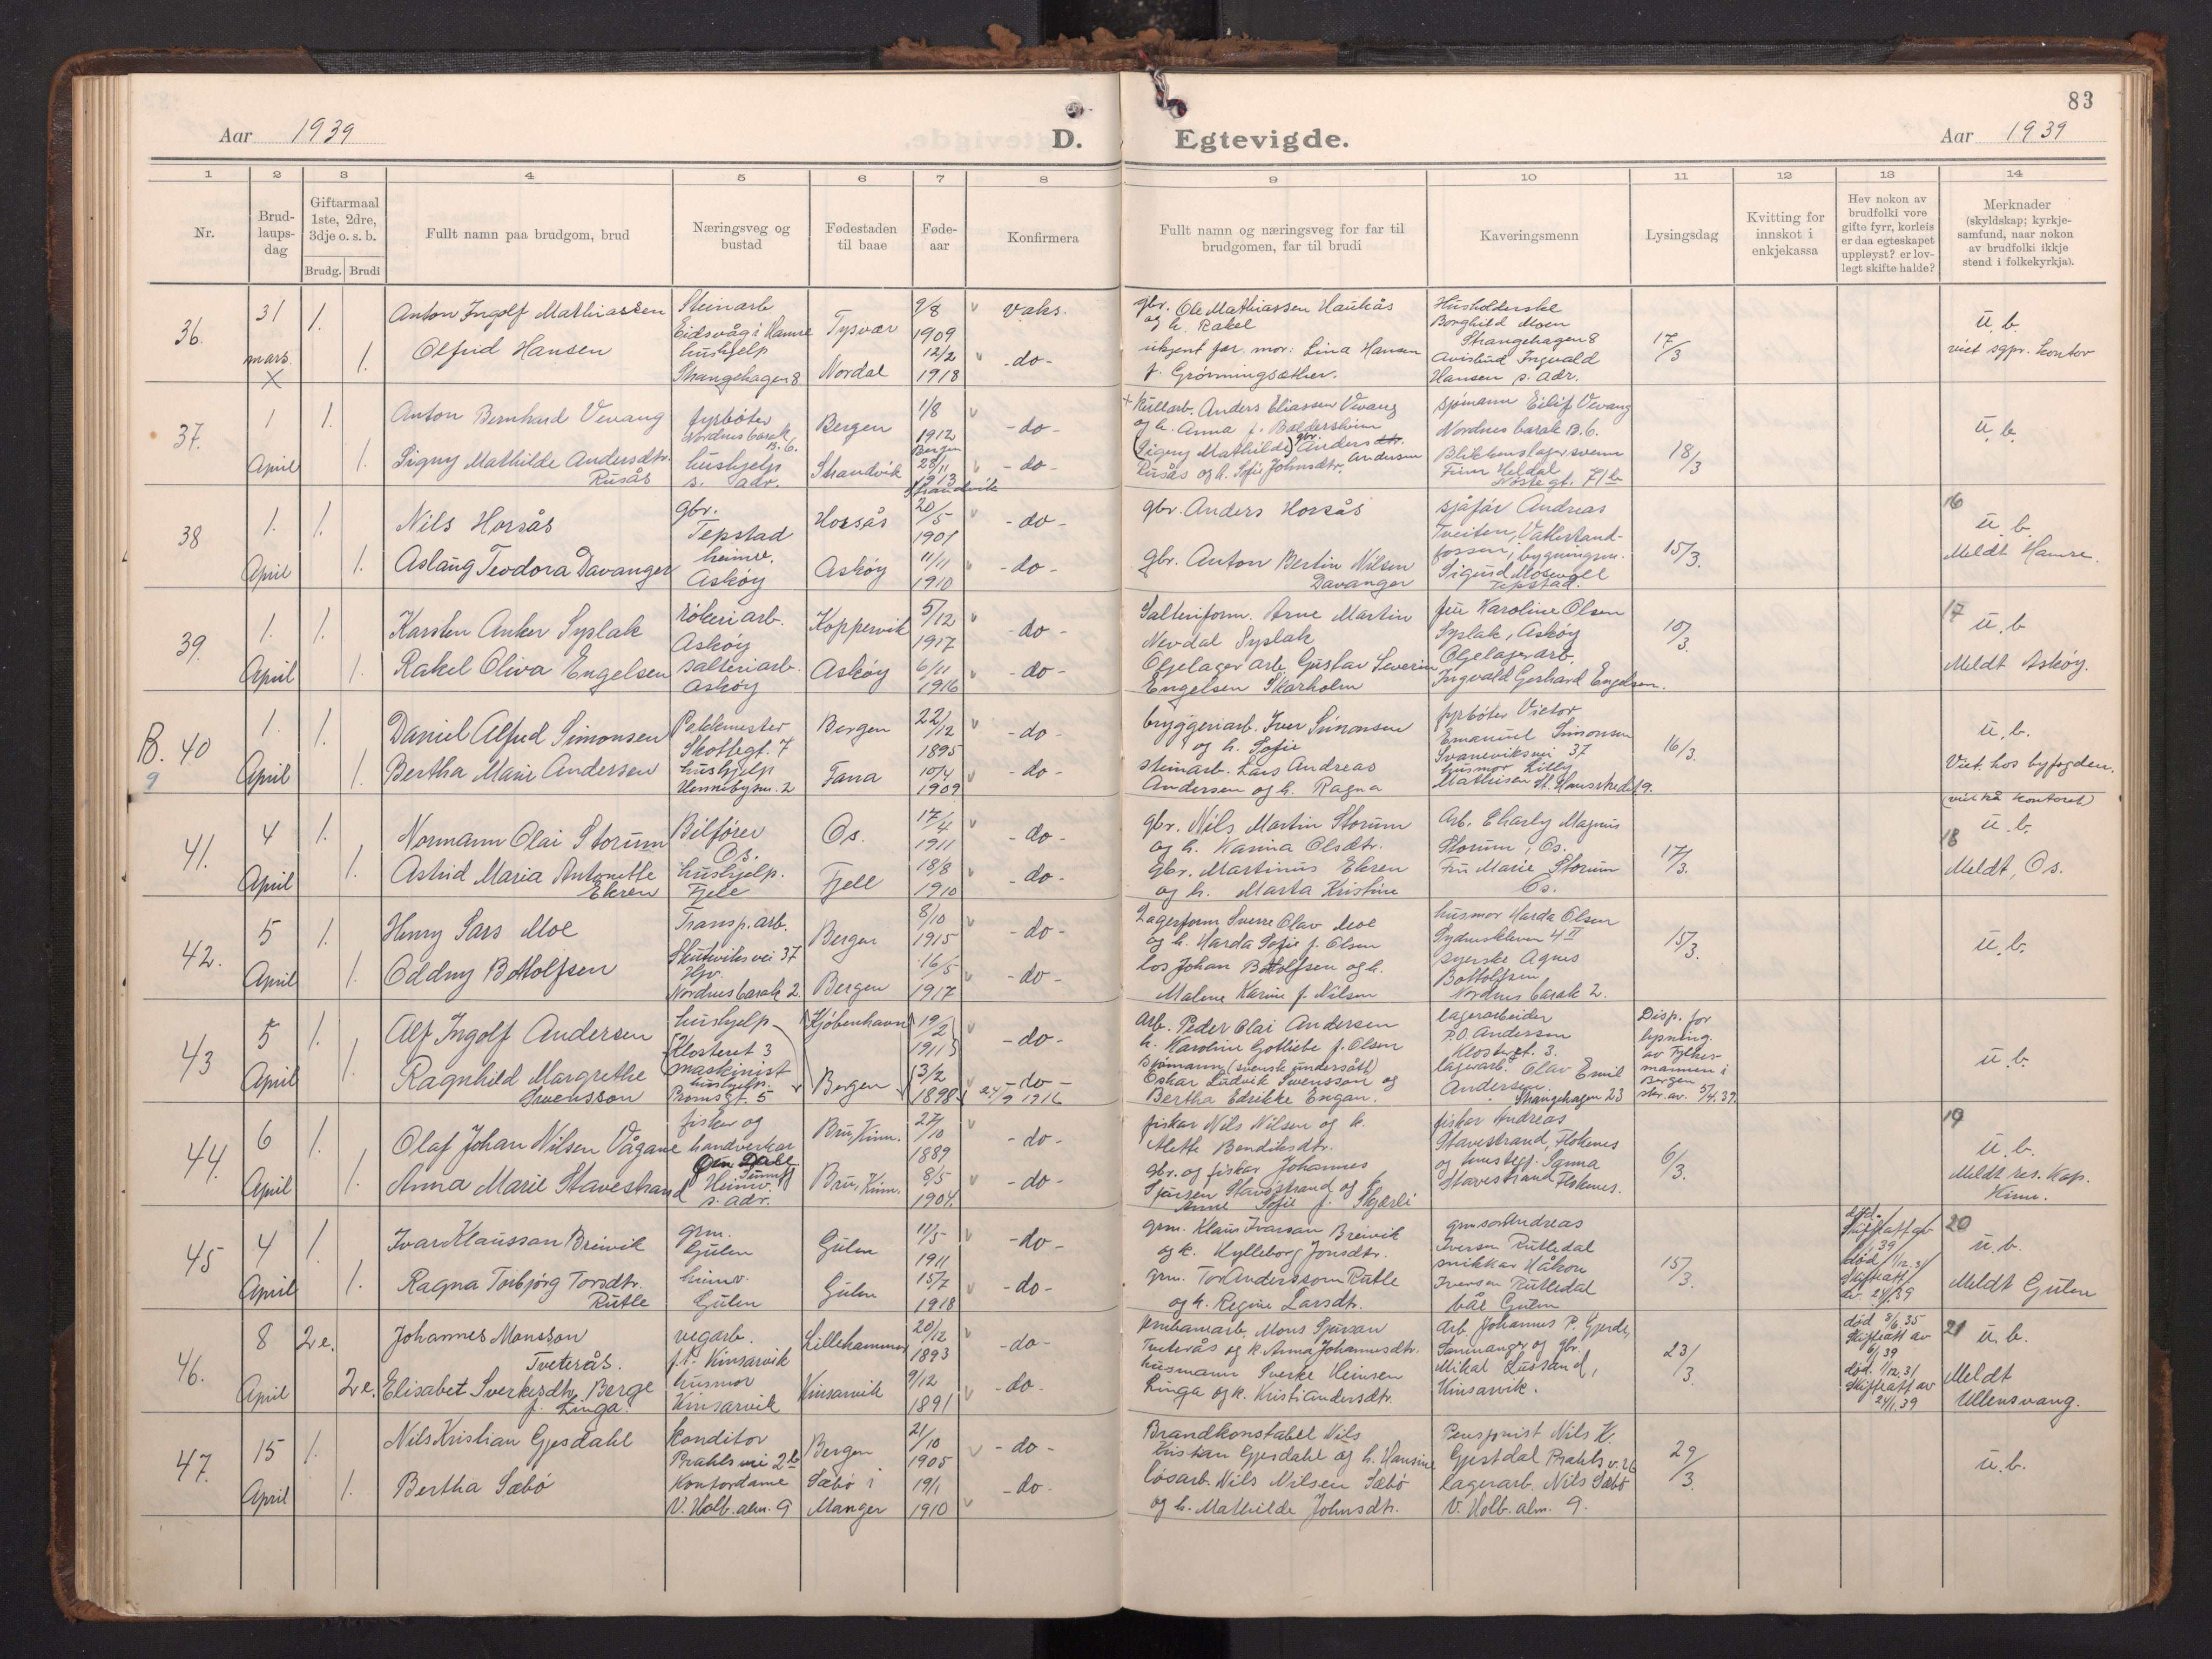 83
Aar 1939
D. Egtevigde.
Aar 1939
1 2 3 4 5 6 7 8 9 10 11 12 13 14
Nr.
Brud-
laups-
dag
Giftarmaal
1ste, 2dre,
3dje o. s. b.
Brudg. Brudi
Fullt namn paa brudgom, brud
Næringsveg og
bustad
Fødestaden
til baae
Føde-
aar
Konfirmera
Fullt namn og næringsveg for far til
brudgomen, far til brudi
Kaveringsmenn
Lysingsdag
Kvitting for
innskot i
enkjekassa
Hev nokon av
brudfolki vore
gifte fyrr, korleis
er daa egteskapet
uppløyst? er lov-
legt skifte halde?
Merknader
(skyldskap; kyrkje-
samfund, naar nokon
av brudfolki ikkje
stend i folkekyrkja).
36.
31
mars
X
1.
1.
Anton Ingolf Mathiassen
Olfrid Hansen
Steinarb
Eidsvåg i Hamre
hushjelp
Strangehagen 8
Tysvær
Nordal
9/8
1909
12/2
1918
vaks.
- do -
gbr. Ole Mathiassen Haukås
og h. Rakel
ukjent far. mor: Lina Hansen
f. Grønningsæther.
Husholderske
Borghild Moen
Strangehagen 8
Avisbud Ingvald
Hansen s. adr.
17/3
u. b.
viet sgpr. kontor
37.
1
April
1.
1.
Anton Bernhard Vevang
Signy Mathilde Andersdtr.
Rusås
fyrbøter
Nordnes barak
B. 6.
hushjelp
s. adr.
Bergen
Strandvik
1/8
1912
Bergen
28/11
1913
Strandvik
- do -
- do -
+ Kullarb. Anders Eliassen Vevang
og h. Anna f. Boldersheim
(Signy Mathilde) gbr. Anders dtr. Andersen
Rusås og h. Sofie Johnsdtr.
sjømann Eilif Vevang
Nordnes barak B. 6.
Blikkenslagersvenn
Finn Heldal
Nøstegt. 71 b
18/3
u. b.
38
1.
April
1.
1.
Nils Horsås
Aslaug Teodora Davanger
gbr.
Tepstad
heimv.
Askøy
Horsås
Askøy
20/5
1901
11/11
1910
- do -
- do -
gbr. Anders Horsås
gbr. Anton Bertin Nilsen
Davanger
sjåfør Andreas
Tveiten, Vatlestrand-
fossen, bygningsm.
Sigurd Mosevoll
Tepstad.
15/3.
16
u. b.
Meldt Hamre.
39.
1.
April
1.
1.
Karsten Anker Syslak
Rakel Oliva Engelsen
røkeriarb.
Askøy
salteriarb.
Askøy
Koppervik
Askøy
5/12
1917
6/11
1916
- do -
- do -
Salteriform. Arne Martin
Nevdal Syslak
Oljelagerarb. Gustav Severin
Engelsen Skarholm
fru Karoline Olsen
Syslak, Askøy
Oljelagerarb.
Ingvald Gerhard Engelsen.
10/3.
17
u. b
Meldt Askøy.
B. 40
9
1.
April
1.
1.
Daniel Alfred Simonsen
Bertha Marie Andersen
Pakkmester
Skottegt. 7
hushjelp
Hennebysm. 2
Bergen
Fana
22/12
1895
10/4
1909
- do -
- do -
bryggeriarb. Iver Simonsen
og h. Sofie
steinarb. Lars Andreas
Andersen og h. Ragna
fyrbøter Victor
Emanuel Simonsen
Svaneviksvei 37
husmor Lilly
Mathisen St. Hansstredet 9.
16/3.
u. b.
Viet hos byfogden.
41.
4
April
1.
1.
Normann Olai Storum
Astrid Maria Antonette
Ekren
Bilfører
Os.
hushjelp.
Fjell
Os.
Fjell
17/4
1911
18/8
1910
- do -
- do -
gbr. Nils Martin Storum
og h. Karina Olsdtr.
Gbr. Martinus Ekren
og h. Marta Kristine
Arb. Charly Magnus
Storum, Os.
Fru Marie Storum
Os.
17/3.
(viet på kontoret)
u. b.
18
Meldt, Os.
42.
5
April
1.
1.
Henry Sars Moe
Oddny Bottolfsen
Transp. arb.
Skuteviksvei 37
Hjv.
Nordnes barak 2.
Bergen
Bergen
8/10
1915
16/5
1917
- do -
- do -
Lagerform Sverre Olav Moe
og h. Harda Sofie f. Olsen
los Johan Bottolfsen og h.
Malene Karine f. Nilsen
husmor Harda Olsen
Sydneskleven 4 II
syerske Agnes
Bottolfsen
Nordnes barak 2.
15/3.
u. b.
43
5
April
1.
1.
Alf Ingolf Andersen
Ragnhild Margrethe
Svensson
hushjelp
Klosteret 3
maskinist
hushjelp.
Promsgt. 5
Kjøbenhavn
Bergen
19/2
1911
3/2
1898
- do -
- do -
24/9 1916
Arb. Peder Olai Andersen
h. Karoline Gotliebe f. Olsen
Sjømann (svensk undersått)
Oskar Ludvik Svensson og
Bertha Edrikke Engan.
lagerarbeider
P.O. Andersen
Klosteret. 3.
lagerarb. Olav Emil
Andersen.
Strangehagen 23
Disp. for
lysning.
av Fylkes-
mannen i
Bergen
skr. av. 5/4. 39.
u. b.
44.
6
April
1.
1.
Olaf Johan Nilsen Vågane
Anna Marie Stavestrand
fisker og
handverkar
Heimv.
s. adr.
Bru, Kinn.
Bru, Kinn.
27/10
1889
8/5
1904.
- do -
- do -
fiskar Nils Nilsen og k.
Alethe Bendiksdtr.
gbr. og fiskar Johannes
Sjursen Stavestrand og k
Anne Sofie f. Skjærli
fiskar Andreas
Stavestrand, Florenes
og hustegj. Sanna
Stavestrand Florenes.
6/3.
19
u. b.
Meldt res. kap.
Kinn.
45
4
April
1.
1.
Ivar Klausson Breivik
Ragna Torbjørg Torsdtr.
Rutle
grm.
Gulen
heimv.
Gulen
Gulen
Gulen
11/5
1911
15/7
1918
- do -
- do -
grm. Klaus Ivarsøn Breivik
og k. Hylleborg Jonsdtr.
grm. Tor Andersson Rutle
og h. Regine Larsdtr.
grmson Andreas
Iversen Rutledal
snikkar Håkon
Iversen Rutledal
båe Gulen
15/3.
20
u. b.
Meldt Gulen
46.
8
April
2e.
2e.
Johannes Monsson
Tveterås.
Elisabet Sverkesdtr. Berge
f. Linga.
vegarb.
f.t. Kinsarvik
husmor
Kinsarvik
Lillehammer
Kinsarvik
20/12
1893
9/12
1891
- do -
- do -
Mons Sjursøn
Tveterås og k. Anna Johannesdtr.
husmann Sverke Heinsen
Linga og k. Kristi Andersdtr.
Arb. Johannes P. Gjerde,
Samnanger og gbr.
Mikal Lussand,
Kinsarvik.
23/3
død 8/6.35
Skifteatt av
6/39
død. 1/12.31
Skifteatt av
24/1.39
21 u. b.
Meldt
Ullensvang.
47.
15
April
1.
1.
Nils Kristian Gjesdahl
Bertha Sæbø
konditor
Prahls vei 2b
Kontordame
V. Holb. alm. 9
Bergen
Sæbø i
Manger
21/10
1905
19/1
1910
- do -
- do -
Brandkonstabel Nils
Kristian Gjesdahl og h. Hansine
løsarb. Nils Nilsen Sæbø
og h. Mathilde Johnsdtr.
Pensjonist Nils K.
Gjestdal Prahls v. 2b
Lagerarb. Nils Sæbø
V. Holb. alm. 9.
29/3.
u. b.